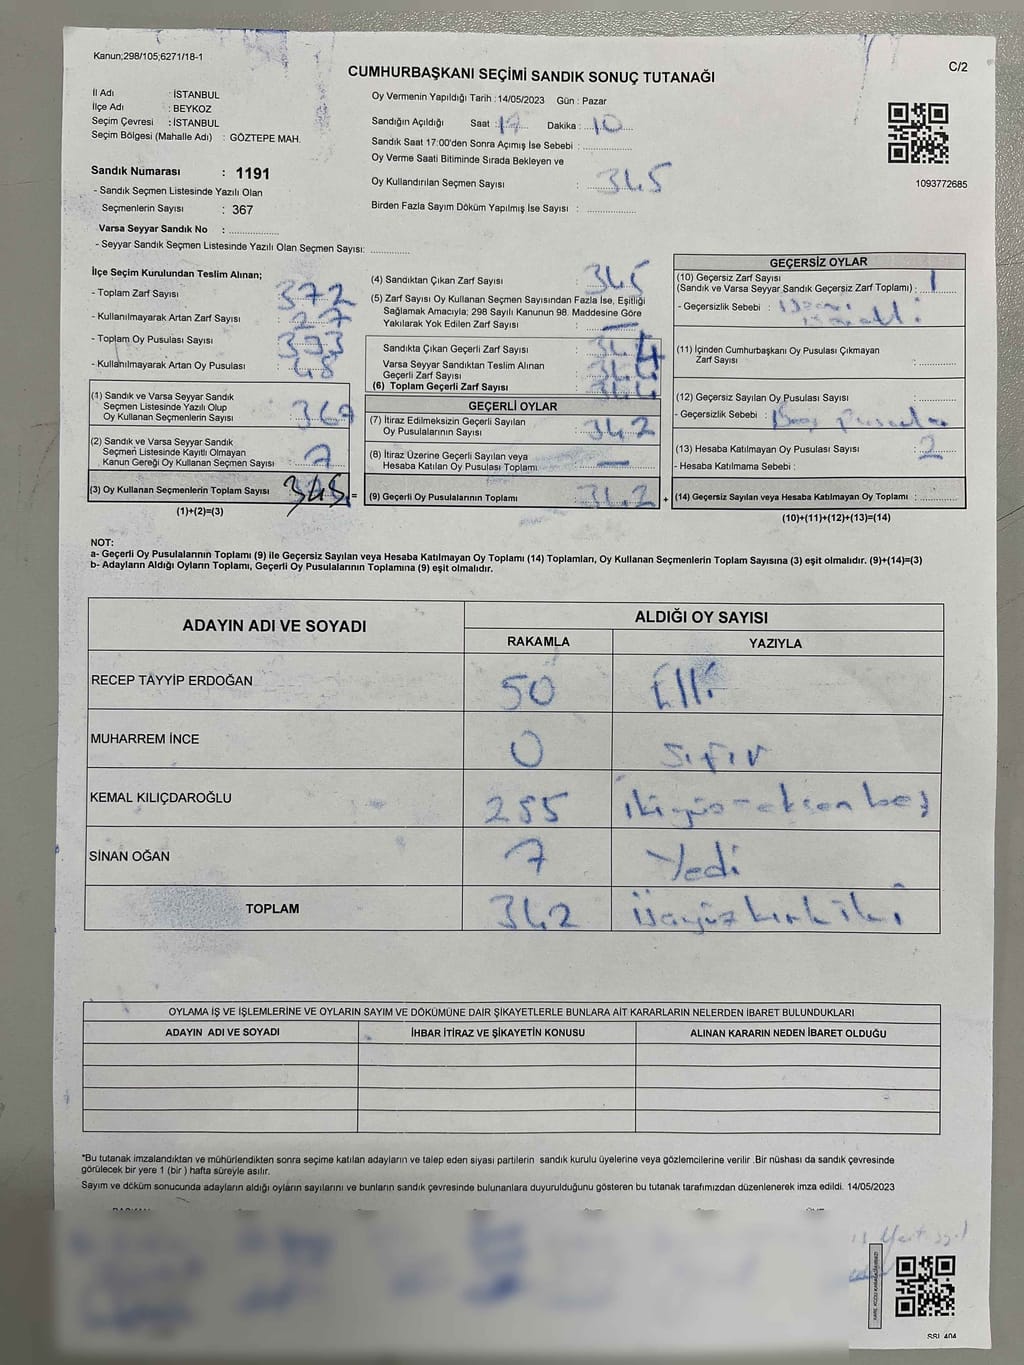 Kanun;298/105;6271/18-1
C/2
CUMHURBAŞKANI SEÇİMİ SANDIK SONUÇ TUTANAĞI
İl Adı : İSTANBUL
İlçe Adı : BEYKOZ
Seçim Çevresi : İSTANBUL
Seçim Bölgesi (Mahalle Adı) : GÖZTEPE MAH.
Oy Vermenin Yapıldığı Tarih : 14/05/2023 Gün : Pazar
Sandığın Açıldığı Saat : 17 Dakika : 10
Sandık Saat 17:00'den Sonra Açımış İse Sebebi :
Oy Verme Saati Bitiminde Sırada Bekleyen ve
Oy Kullandırılan Seçmen Sayısı : 345
Birden Fazla Sayım Döküm Yapılmış İse Sayısı :
1093772685
Sandık Numarası : 1191
- Sandık Seçmen Listesinde Yazılı Olan
Seçmenlerin Sayısı : 367
Varsa Seyyar Sandık No :
- Seyyar Sandık Seçmen Listesinde Yazılı Olan Seçmen Sayısı:
İlçe Seçim Kurulundan Teslim Alınan;
- Toplam Zarf Sayısı : 372
- Kullanılmayarak Artan Zarf Sayısı : 27
- Toplam Oy Pusulası Sayısı :
- Kullanılmayarak Artan Oy Pusulası : 48
(1) Sandık ve Varsa Seyyar Sandık
Seçmen Listesinde Yazılı Olup
Oy Kullanan Seçmenlerin Sayısı :
(2) Sandık ve Varsa Seyyar Sandık
Seçmen Listesinde Kayıtlı Olmayan
Kanun Gereği Oy Kullanan Seçmen Sayısı : 7
(3) Oy Kullanan Seçmenlerin Toplam Sayısı : 345 =
(1)+(2)=(3)
(4) Sandıktan Çıkan Zarf Sayısı : 345
(5) Zarf Sayısı Oy Kullanan Seçmen Sayısından Fazla İse, Eşitliği
Sağlamak Amacıyla; 298 Sayılı Kanunun 98. Maddesine Göre
Yakılarak Yok Edilen Zarf Sayısı : —
Sandıkta Çıkan Geçerli Zarf Sayısı : 344
Varsa Seyyar Sandıktan Teslim Alınan
Geçerli Zarf Sayısı : 344
(6) Toplam Geçerli Zarf Sayısı : 344
GEÇERLİ OYLAR
(7) İtiraz Edilmeksizin Geçerli Sayılan
Oy Pusulalarının Sayısı : 342
(8) İtiraz Üzerine Geçerli Sayılan veya
Hesaba Katılan Oy Pusulası Toplamı : —
(9) Geçerli Oy Pusulalarının Toplamı : 342 +
GEÇERSİZ OYLAR
(10) Geçersiz Zarf Sayısı
(Sandık ve Varsa Seyyar Sandık Geçersiz Zarf Toplamı) : 1
- Geçersizlik Sebebi :
(11) İçinden Cumhurbaşkanı Oy Pusulası Çıkmayan
Zarf Sayısı :
(12) Geçersiz Sayılan Oy Pusulası Sayısı :
- Geçersizlik Sebebi : Boş pusula
(13) Hesaba Katılmayan Oy Pusulası Sayısı : 2
- Hesaba Katılmama Sebebi :
(14) Geçersiz Sayılan veya Hesaba Katılmayan Oy Toplamı :
(10)+(11)+(12)+(13)=(14)
NOT:
a- Geçerli Oy Pusulalarının Toplamı (9) ile Geçersiz Sayılan veya Hesaba Katılmayan Oy Toplamı (14) Toplamları, Oy Kullanan Seçmenlerin Toplam Sayısına (3) eşit olmalıdır. (9)+(14)=(3)
b- Adayların Aldığı Oyların Toplamı, Geçerli Oy Pusulalarının Toplamına (9) eşit olmalıdır.
ADAYIN ADI VE SOYADI
ALDIĞI OY SAYISI
RAKAMLA YAZIYLA
RECEP TAYYİP ERDOĞAN 50 Elli
MUHARREM İNCE 0 Sıfır
KEMAL KILIÇDAROĞLU 285 ikiyüzseksen beş
SİNAN OĞAN 7 Yedi
TOPLAM 342 Üçyüz kırk iki
OYLAMA İŞ VE İŞLEMLERİNE VE OYLARIN SAYIM VE DÖKÜMÜNE DAİR ŞİKAYETLERLE BUNLARA AİT KARARLARIN NELERDEN İBARET BULUNDUKLARI
ADAYIN ADI VE SOYADI İHBAR İTİRAZ VE ŞİKAYETİN KONUSU ALINAN KARARIN NEDEN İBARET OLDUĞU
*Bu tutanak imzalandıktan ve mühürlendikten sonra seçime katılan adayların ve talep eden siyasi partilerin sandık kurulu üyelerine veya gözlemcilerine verilir .Bir nüshası da sandık çevresinde
görülecek bir yere 1 (bir ) hafta süreyle asılır.
Sayım ve döküm sonucunda adayların aldığı oyların sayılarını ve bunların sandık çevresinde bulunanlara duyurulduğunu gösteren bu tutanak tarafımızdan düzenlenerek imza edildi. 14/05/2023